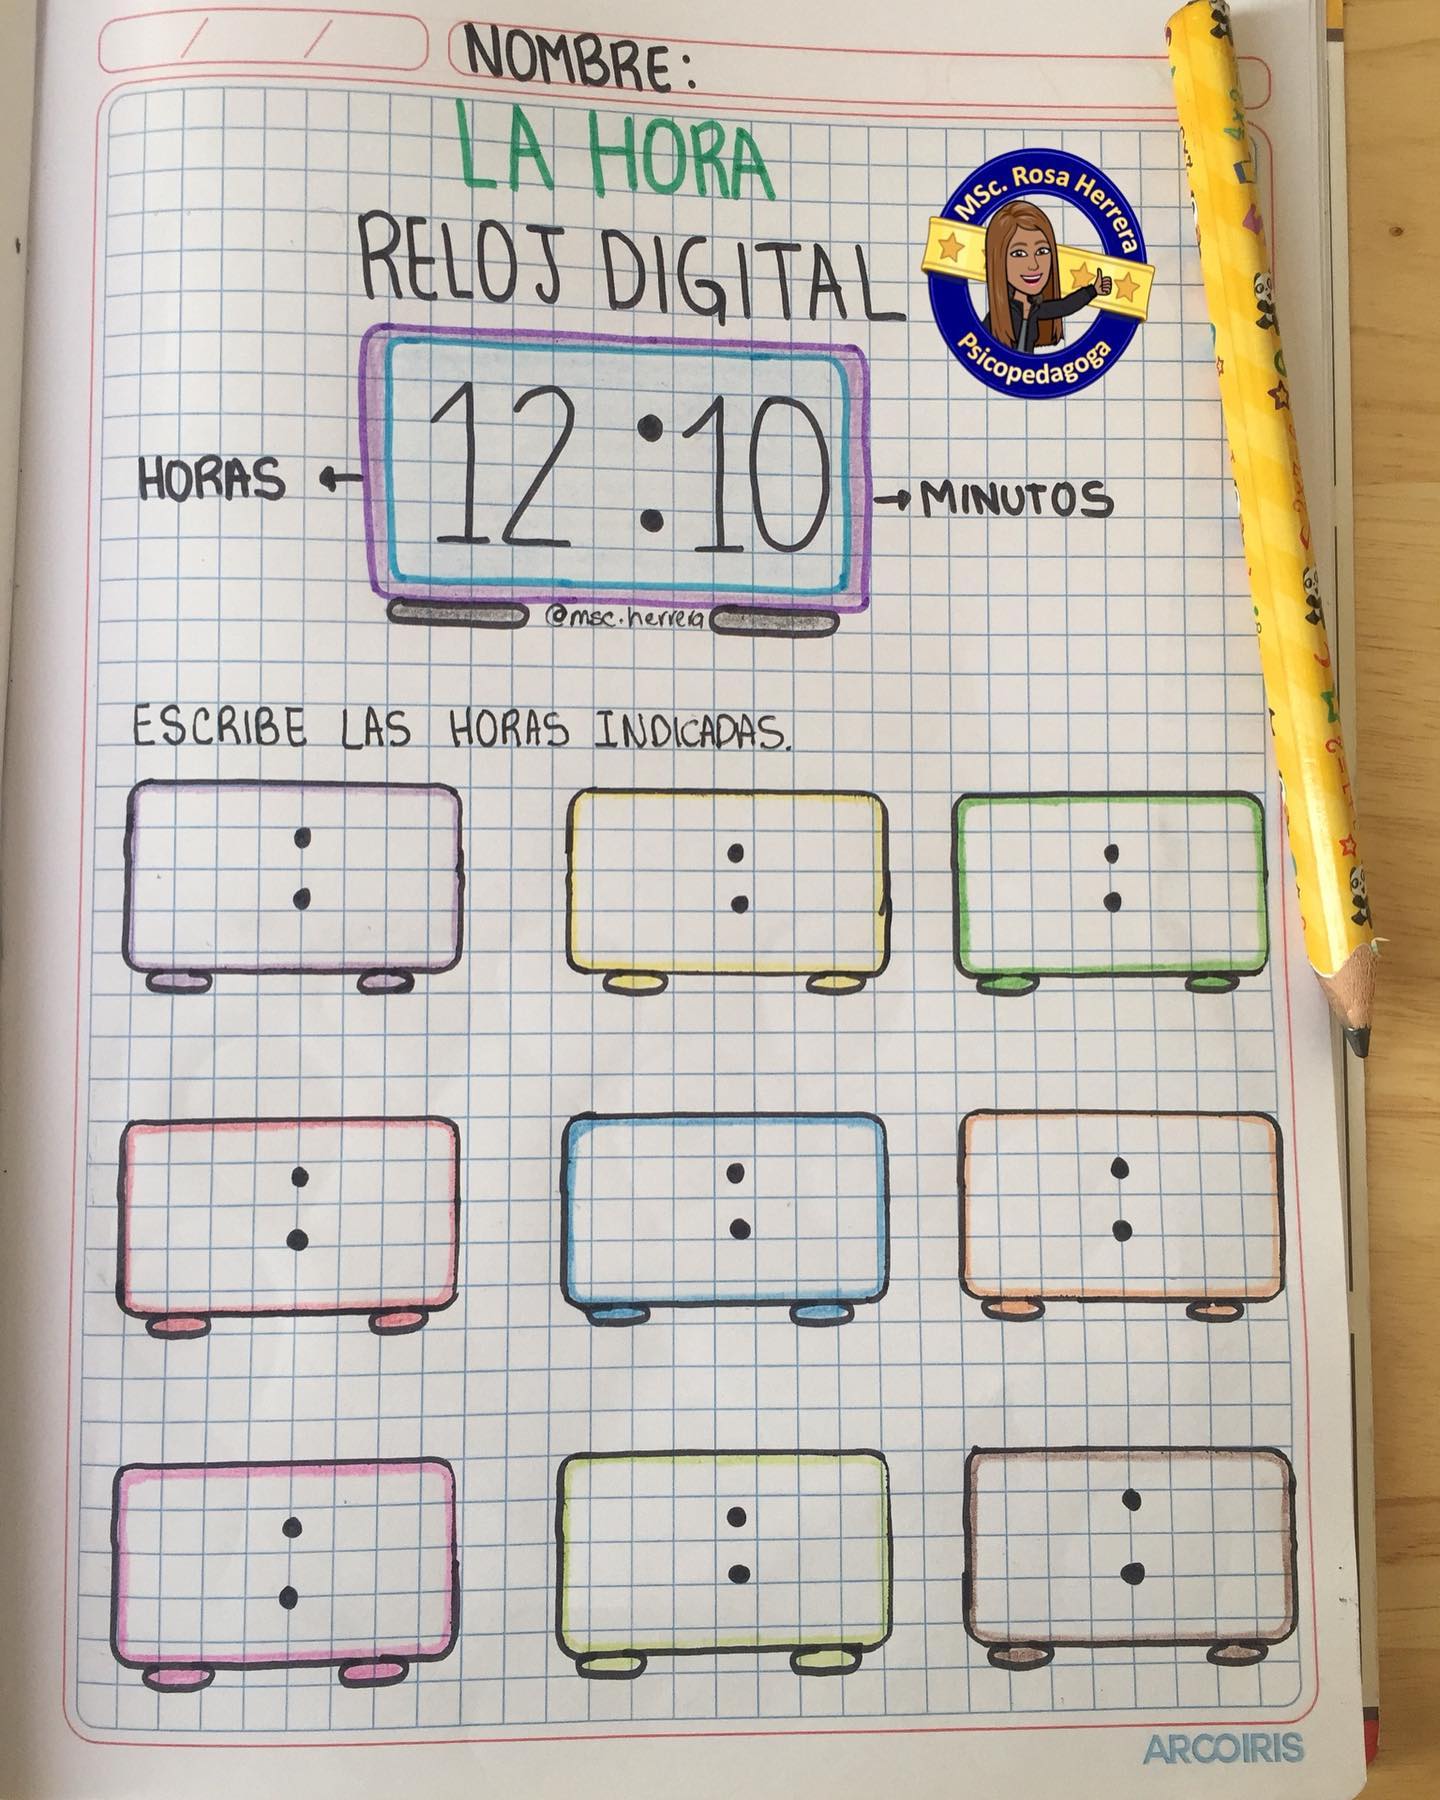 NOMBRE:
LA HORA
MSc. Rosa Herrera
Psicopedagoga
RELOJ DIGITAL
12:10
HORAS
MINUTOS
@msc.herrera
ESCRIBE LAS HORAS INDICADAS.
ARCOIRIS